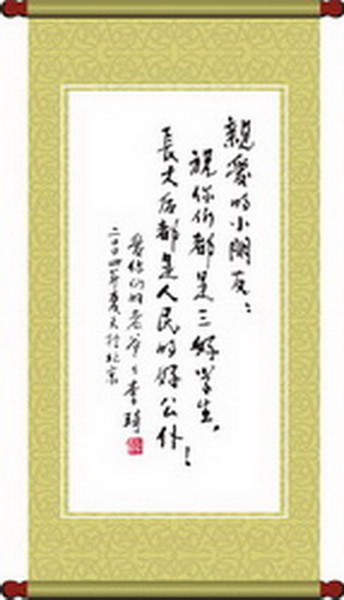 親爱的小朋友：
祝你们都是三好学生，
長大后都是人民的好公仆！
爱你们的老爷爷李琦
二〇〇四年夏天于北京